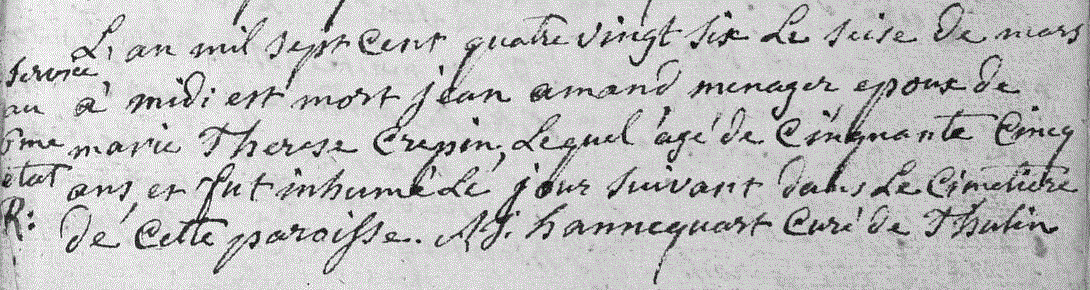 L'an mil sept cent quatre vingt six Le seise de mars
à midi est mort jean amand menager epoux de
marie Therese Crepin, Lequel âgé de Cinquante Cinq
ans, et fut inhumé Le jour suivant dans Le Cimetiere
de cette paroisse. hannequart Curé de Thulin
service
au
6me
etat
R: